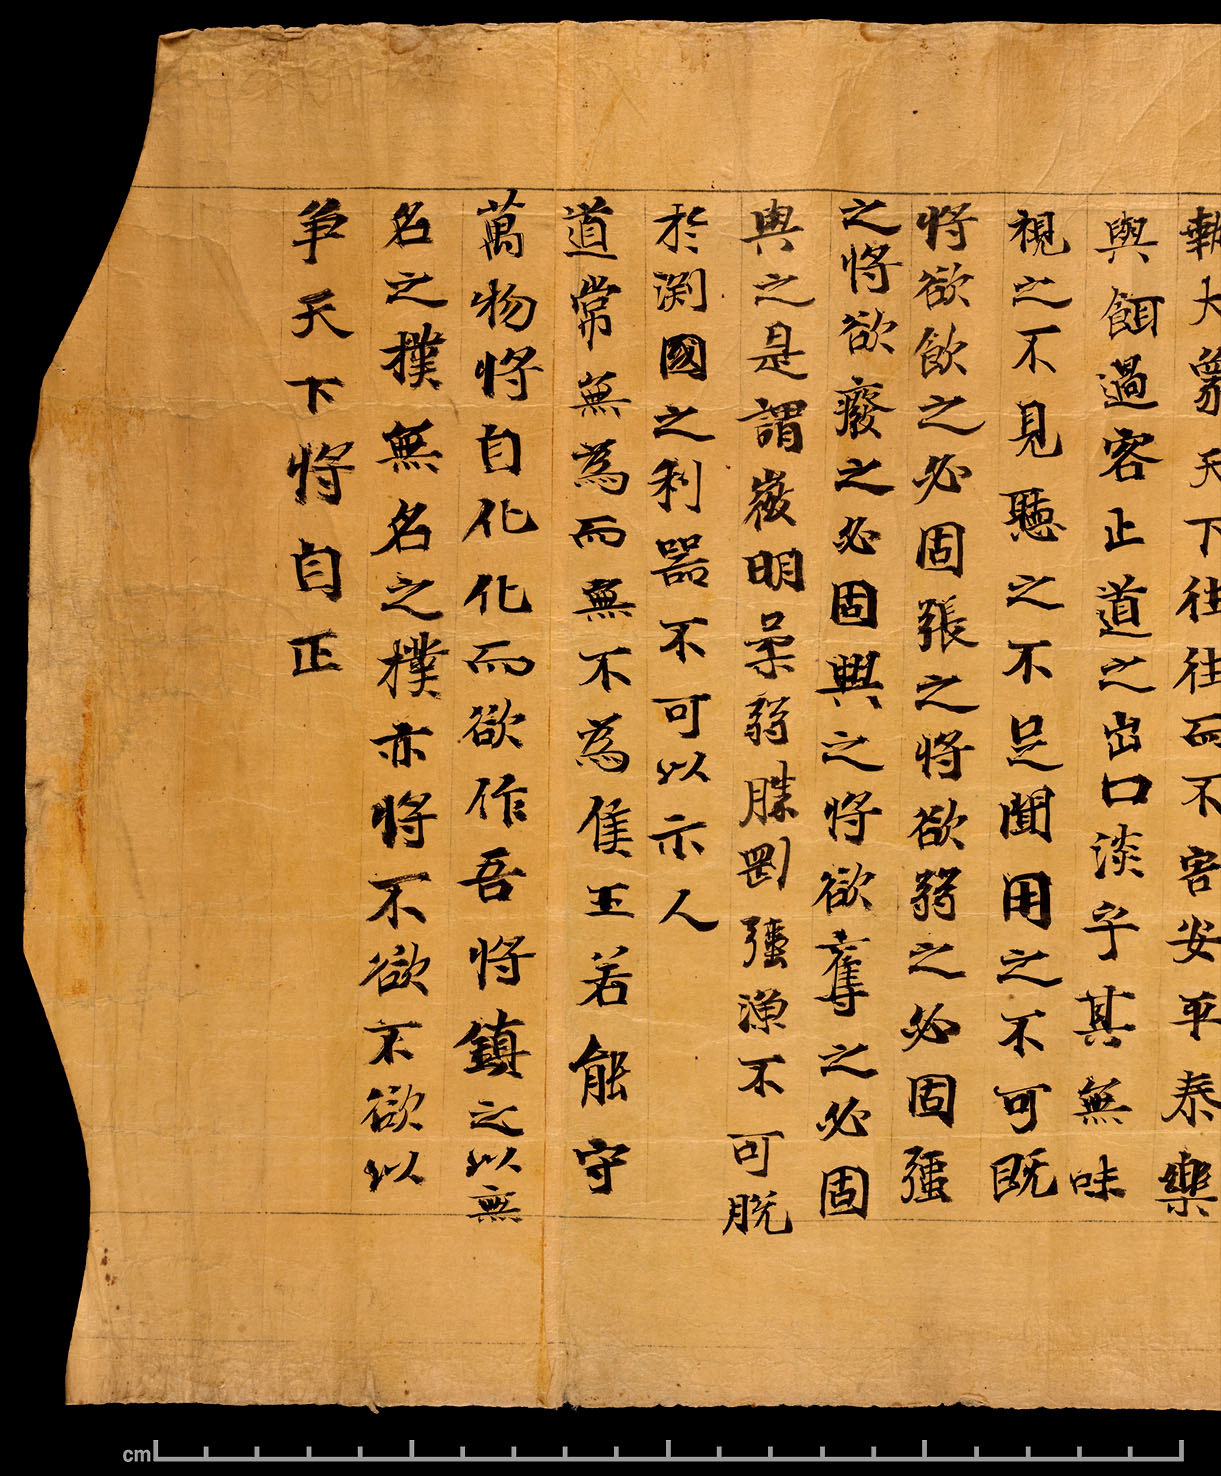 執大象天下往往而不害安平泰樂
與餌過客止道之出口淡乎其無味
視之不見聽之不足聞用之不可既
將欲飲之必固張之將欲弱之必固彊
之將欲廢之必固興之將欲奪之必固
與之是謂微明柔弱勝剛彊漁不可脱
於渕國之利器不可以示人
道常無為而無不為侯王若能守
萬物將自化化而欲作吾將鎮之以無
名之樸無名之樸亦將不欲不欲以
爭天下將自正
cm